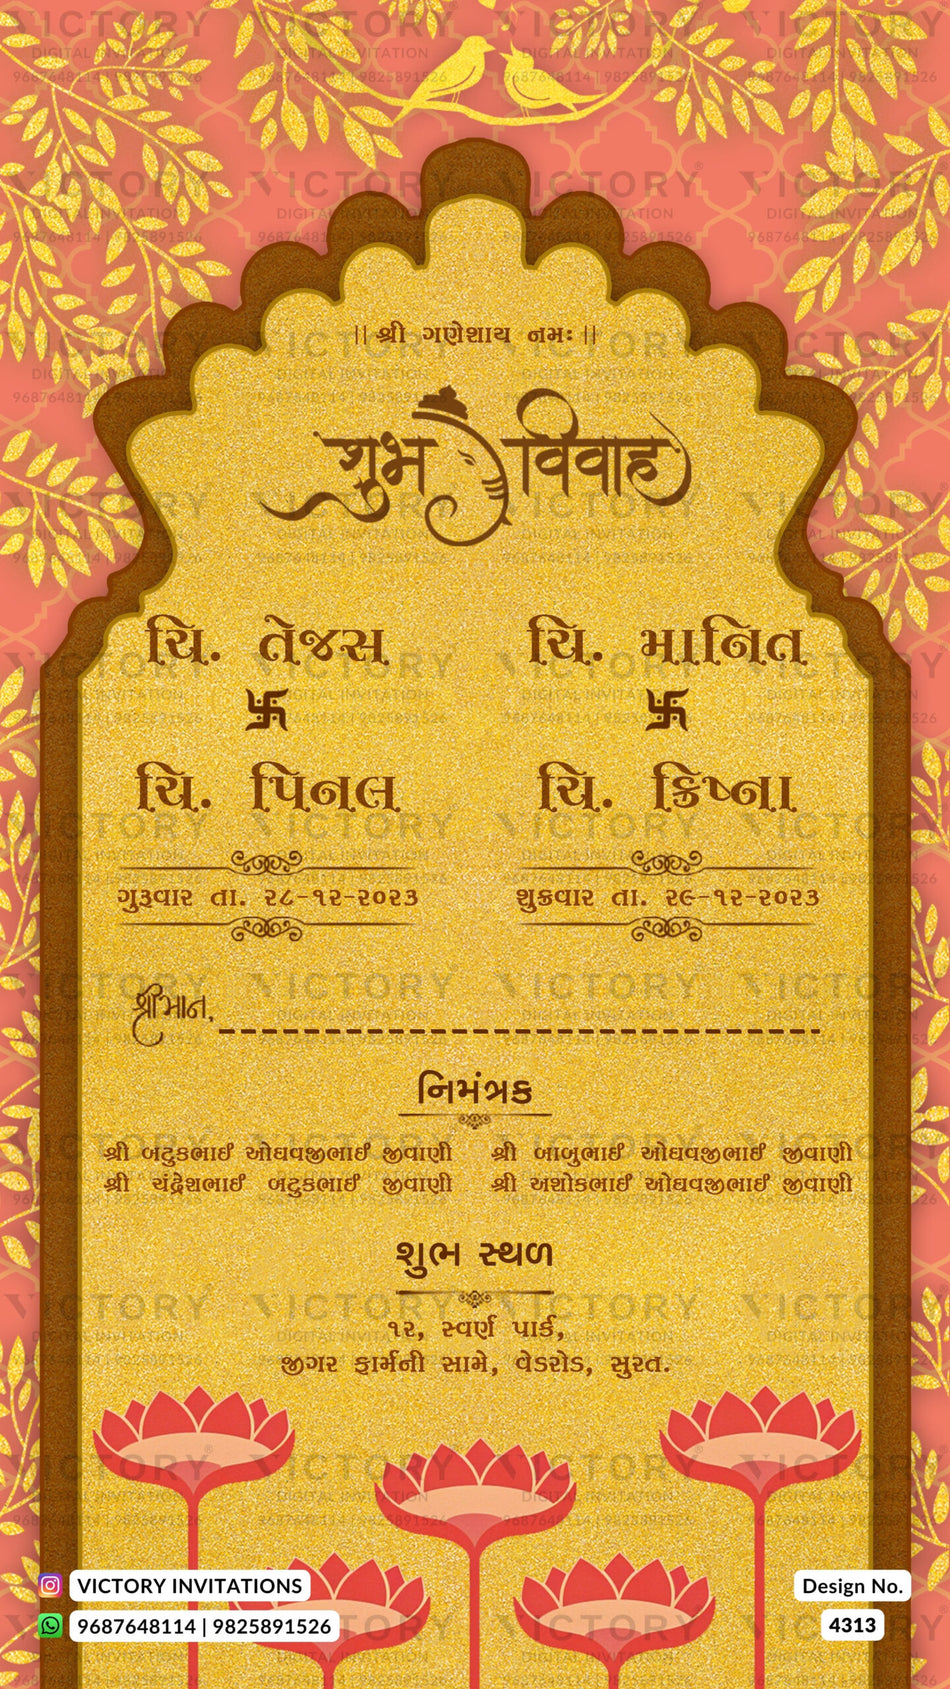 || શ્રી ગણેશાય નમઃ ||
शुभ विवाह
ચિ. તેજસ
卐
ચિ. પિનલ
ગુરૂવાર તા. ૨૮-૧૨-૨૦૨૩
ચિ. માનિત
卐
ચિ. ક્રિષ્ના
શુક્રવાર તા. ૨૯-૧૨-૨૦૨૩
श्रीमान,
નિમંત્રક
શ્રી બટુકભાઈ ઓઘવજીભાઈ જીવાણી
શ્રી ચંદ્રેશભાઈ બટુકભાઈ જીવાણી
શ્રી બાબુભાઈ ઓઘવજીભાઈ જીવાણી
શ્રી અશોકભાઈ ઓઘવજીભાઈ જીવાણી
શુભ સ્થળ
૧૨, સ્વર્ણ પાર્ક,
જીગર ફાર્મની સામે, વેડરોડ, સુરત.
VICTORY INVITATIONS
9687648114 | 9825891526
Design No.
4313
VICTORY
DIGITAL INVITATION
9687648114 | 9825891526